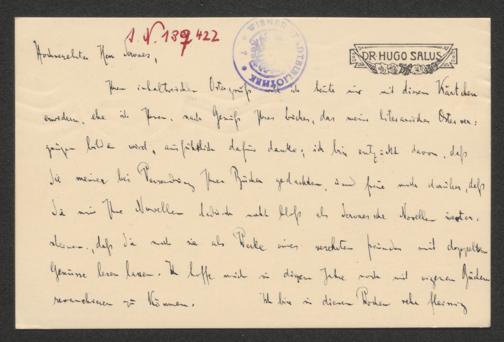 I N. 189.422
WIENER STADTBIBLIOTHEK
DR HUGO SALUS
Hochverehrter Herr Servaes,
Ihren inhaltreichen Ostergruß ich heute nur mit diesem Kärtchen
erwidern, ehe ich Ihnen, nach Genuß Ihrer Bücher, das meine literarischen Oster
bilden wird, ausführlich dafür danke; ich bin entzückt davon, daß
Sie meiner bei Versendung Ihrer Bücher gedachten, und freue mich darüber, daß
Sie mir Ihre Novellen nicht bloß als Servaes'sche Novellen
, daß Sie mich sie als Werke eines verehrten Freundes mit doppeltem
Genusse lesen lassen. Ich hoffe mich in diesem Jahre noch mit eigenen Büchern
revanchieren zu können. Ich bin in diesen Wochen sehr fleissig